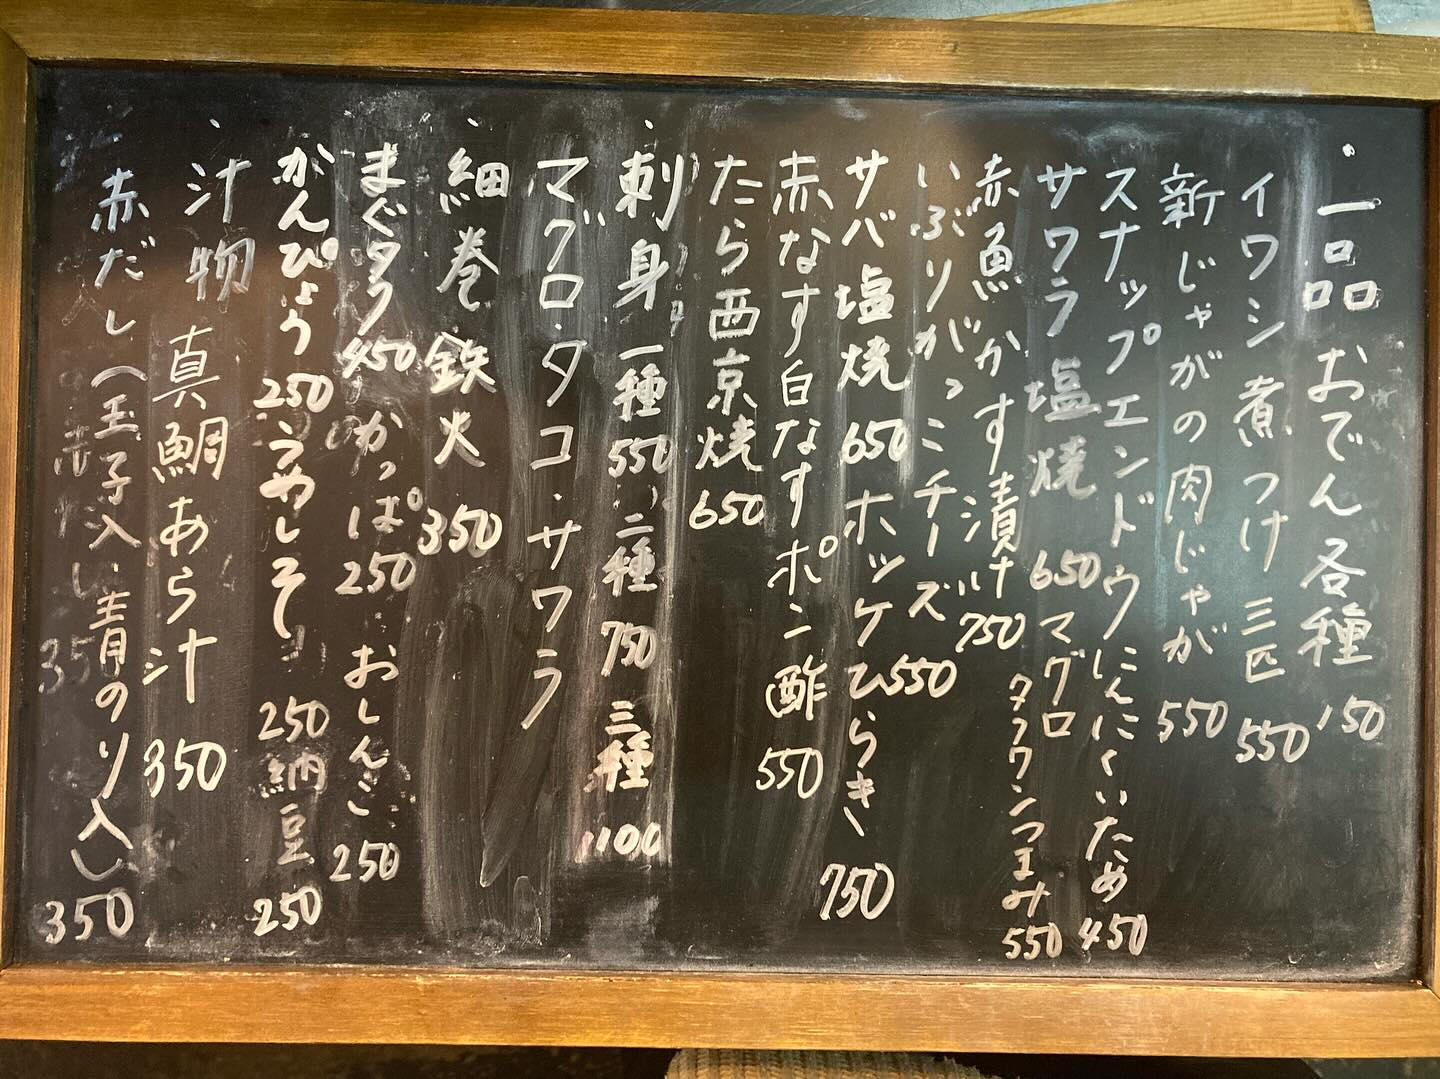 ・一品 おでん各種 150
イワシ煮つけ 三匹 550
新じゃがの肉じゃが 550
スナップエンドウにんにくいため 450
サワラ塩焼 650 マグロタクワンつまみ 550
赤魚かす漬け 750
いぶりがっこチーズ 550
サバ塩焼 650 ホッケひらき 750
赤なす白なすポン酢 550
たら西京焼 650
・刺身 一種 550 二種 750 三種 1100
マグロ・タコ・サワラ
・細巻 鉄火 350
まぐタク 450 かっぱ 250 おしんこ 250
かんぴょう 250 うめしそ 250 納豆 250
・汁物 真鯛あら汁 350
赤だし(玉子入り・青のり入り) 350